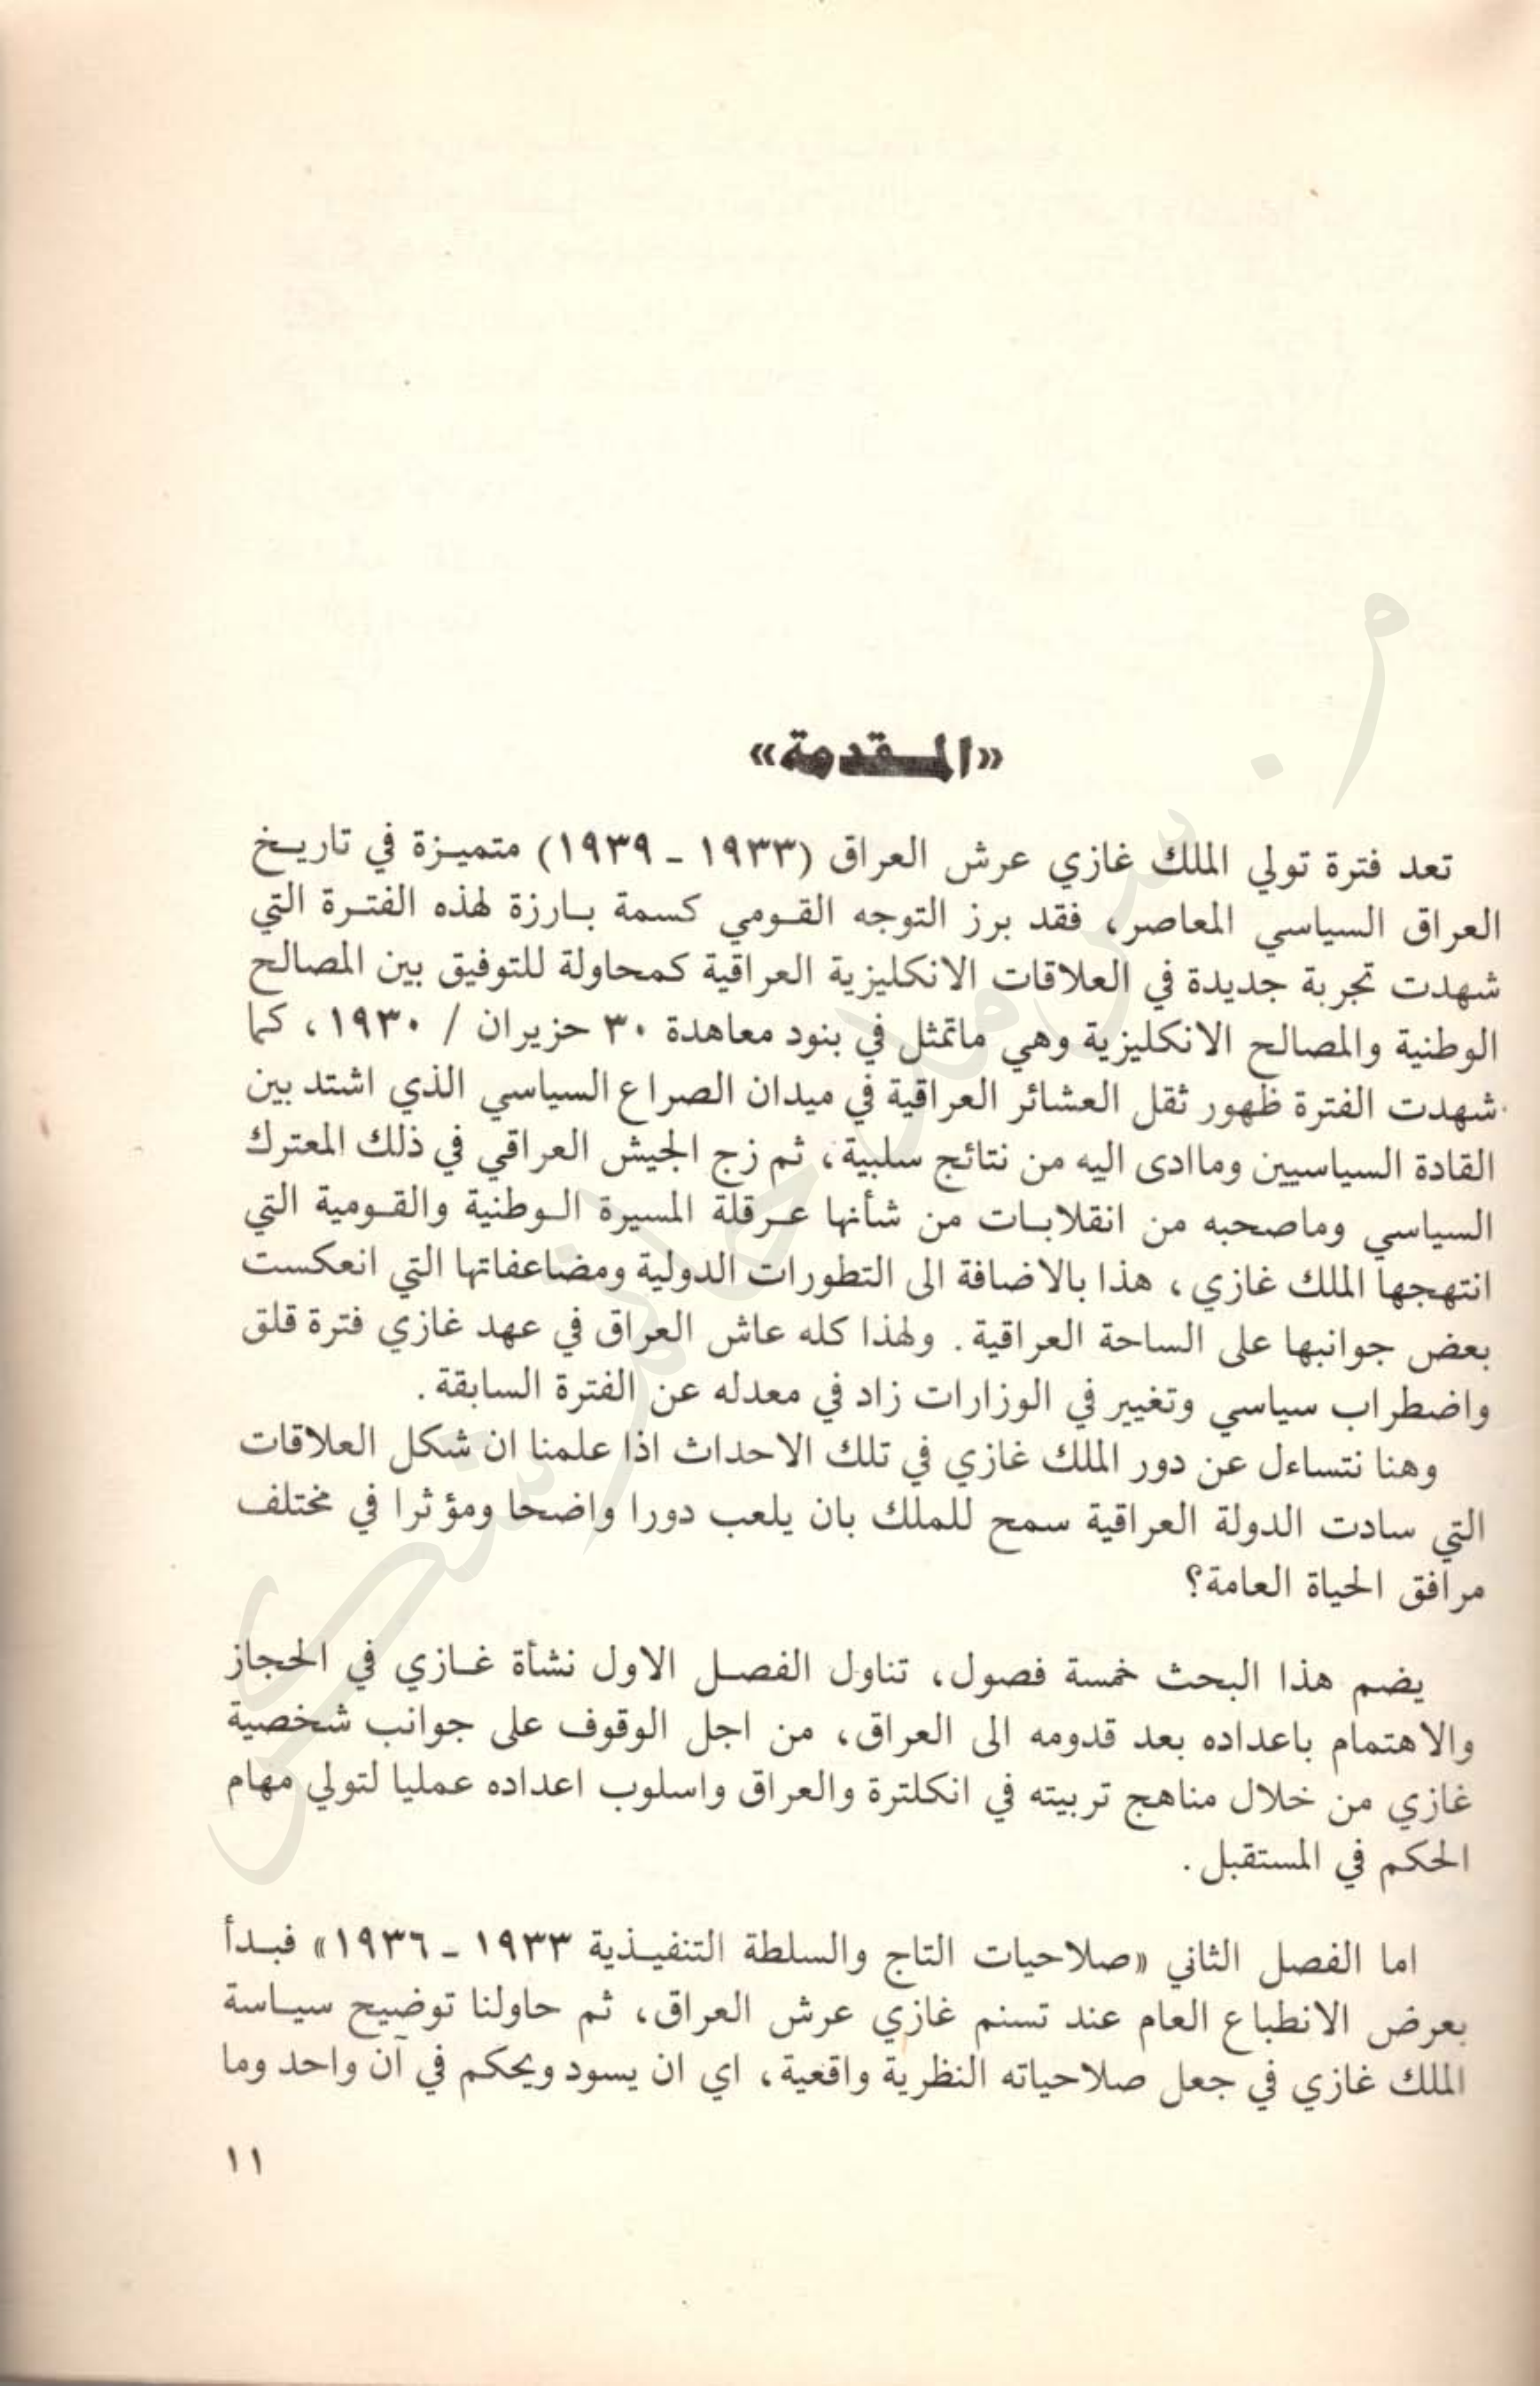 «المقدمة»
تعد فترة تولي الملك غازي عرش العراق (١٩٣٣ - ١٩٣٩) متميزة في تاريخ
العراق السياسي المعاصر، فقد برز التوجه القومي كسمة بارزة لهذه الفترة التي
شهدت تجربة جديدة في العلاقات الانكليزية العراقية كمحاولة للتوفيق بين المصالح
الوطنية والمصالح الانكليزية وهي ماتمثل في بنود معاهدة ٣٠ حزيران / ١٩٣٠، كما
شهدت الفترة ظهور ثقل العشائر العراقية في ميدان الصراع السياسي الذي اشتد بين
القادة السياسيين وماادى اليه من نتائج سلبية، ثم زج الجيش العراقي في ذلك المعترك
السياسي وماصحبه من انقلابات من شأنها عرقلة المسيرة الوطنية والقومية التي
انتهجها الملك غازي، هذا بالاضافة الى التطورات الدولية ومضاعفاتها التي انعكست
بعض جوانبها على الساحة العراقية. ولهذا كله عاش العراق في عهد غازي فترة قلق
واضطراب سياسي وتغيير في الوزارات زاد في معدله عن الفترة السابقة.
وهنا نتساءل عن دور الملك غازي في تلك الاحداث اذا علمنا ان شكل العلاقات
التي سادت الدولة العراقية سمح للملك بان يلعب دورا واضحا ومؤثرا في مختلف
مرافق الحياة العامة؟
يضم هذا البحث خمسة فصول، تناول الفصل الاول نشأة غازي في الحجاز
والاهتمام باعداده بعد قدومه الى العراق، من اجل الوقوف على جوانب شخصية
غازي من خلال مناهج تربيته في انكلترة والعراق واسلوب اعداده عمليا لتولي مهام
الحكم في المستقبل.
اما الفصل الثاني «صلاحيات التاج والسلطة التنفيذية ١٩٣٣ - ١٩٣٦» فبدأ
بعرض الانطباع العام عند تسنم غازي عرش العراق، ثم حاولنا توضيح سياسة
الملك غازي في جعل صلاحياته النظرية واقعية، اي ان يسود ويحكم في آن واحد وما
١١